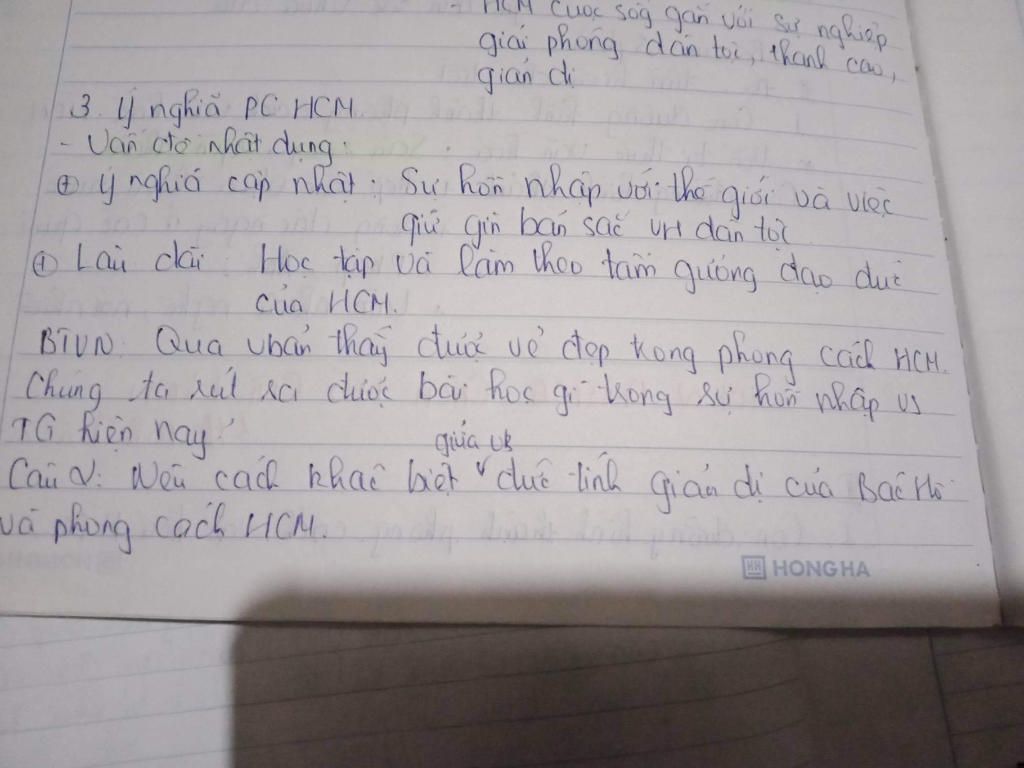 - HCM cuộc sốg gắn với sự nghiệp
giải phóng dân tộc, thanh cao,
giản dị
3. Ý nghĩa PC HCM.
- Văn đề nhật dụng:
+ Ý nghĩa cập nhật: Sự hòn nhập với thế giới và việc
giữ gìn bản sắc VH dân tộc
+ Lâu dài: Học tập và làm theo tấm gương đạo đức
của HCM.
BTVN: Qua vbản thấy được vẻ đẹp trong phong cách HCM.
Chúng ta rút ra được bài học gì trong sự hòn nhập vs
TG hiện nay?
giữa vb
Câu 2: Nêu cách khác biệt v đức tính giản dị của Bác Hồ
và phong cách HCM.
HH HONG HA